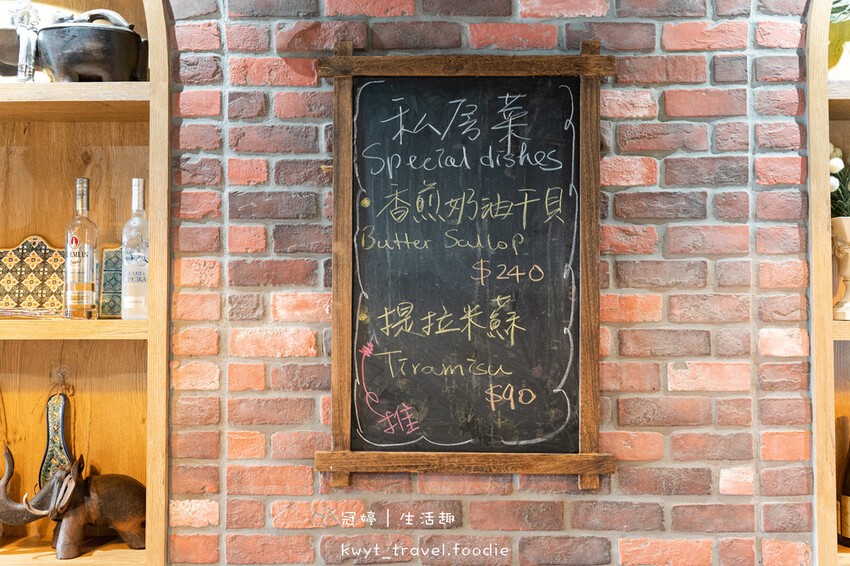 私房菜
Special dishes
香煎奶油干貝
Butter Sallop
$240
提拉米蘇
Tiramisu
$90
推
冠婷｜生活趣
kwyt_travel.foodie